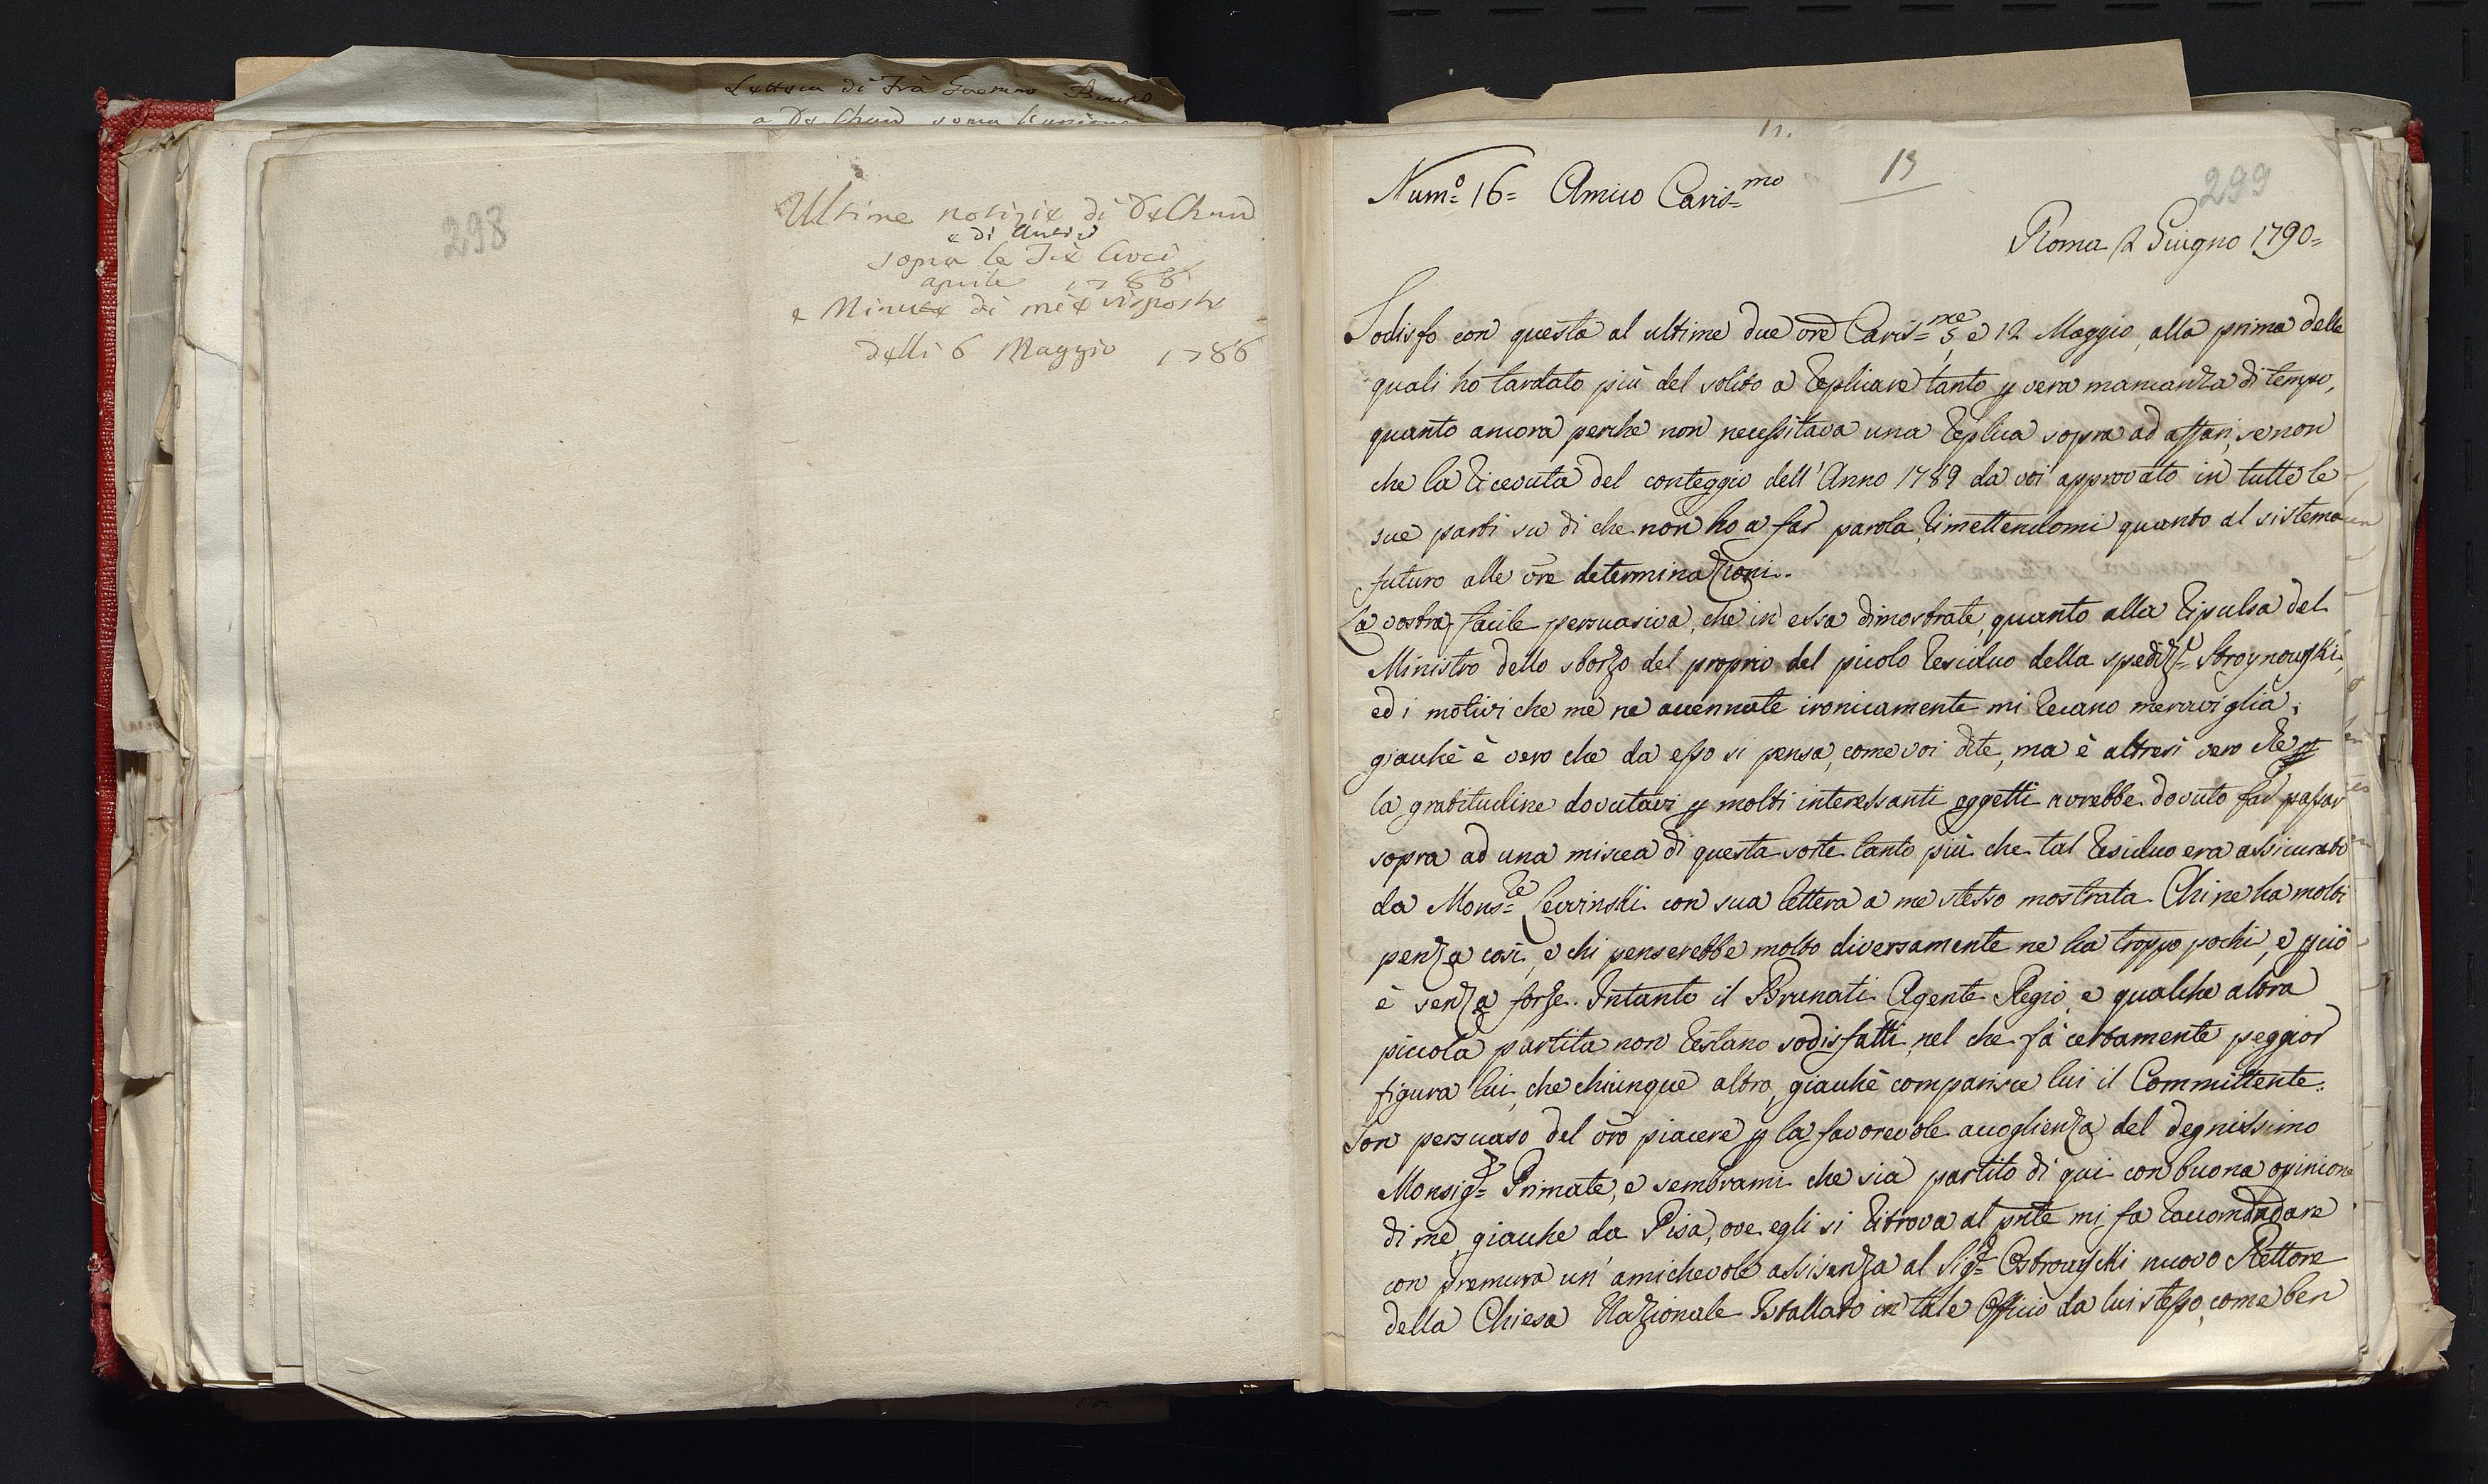 Lettera di Frà Gaetano Bruno
a De Chaud sopra
298
Ultime notizie di De Chaud
e di
sopra le Tre Croci
aprile 1786
e Minute di mie risposte
delli 6 Maggio 1786
11.
Num.o 16= Amico Caris=mo
13
299
Roma 2 Giugno 1790=
Sodisfo con questa al ultime due vre Caris=me 5, e 12 Maggio, alla prima delle
quali ho tardato più del solito a replicare tanto p vera mancanza di tempo,
quanto ancora perche non necessitava una replica sopra ad affari, se non
che la ricevuta del conteggio dell' Anno 1789 da voi approvato in tutte le
sue parti su di che non ho a far parola, rimettendomi quanto al sistema
futuro alle vre determinazioni.
La vostra facile persuasiva, che in essa dimostrate, quanto alla ripulsa del
Ministro dello sborzo del proprio del picolo residuo della spediz.e Stroynowski,
ed i motivi che me ne accennate ironicamente mi recano meraviglia;
giacchè è vero che da esso si pensa, come voi dite, ma è altresi vero che p
la gratitudine dovutavi p molti interessanti oggetti avrebbe dovuto far passar
sopra ad una miscea di questa sorte tanto più che tal residuo era assicurato
da Mons=re Lewinski con sua lettera a me stesso mostrata. Chi ne ha molti
penza così, e chi penserebbe molto diversamente ne ha troppo pochi, e p ciò
è senza forze. Intanto il Brunati Agente Regio, e qualche altra
piccola partita non restano sodisfatti, nel che fà certamente peggior
figura lui, che chiunque altro, giacchè comparisce lui il Committente.
Son persuaso del vro piacere p la favorevole accoglienza del degnissimo
Monsig=r Primate, e sembrami che sia partito di qui con buona opinione
di me, giacche da Pisa, ove egli si ritrova al pnte mi fa raccomandare
con premura un' amichevole assisenza al Sig=r Ostrowski nuovo Rettore
della Chiesa Nazionale Istallato in tale Officio da lui stesso, come ben